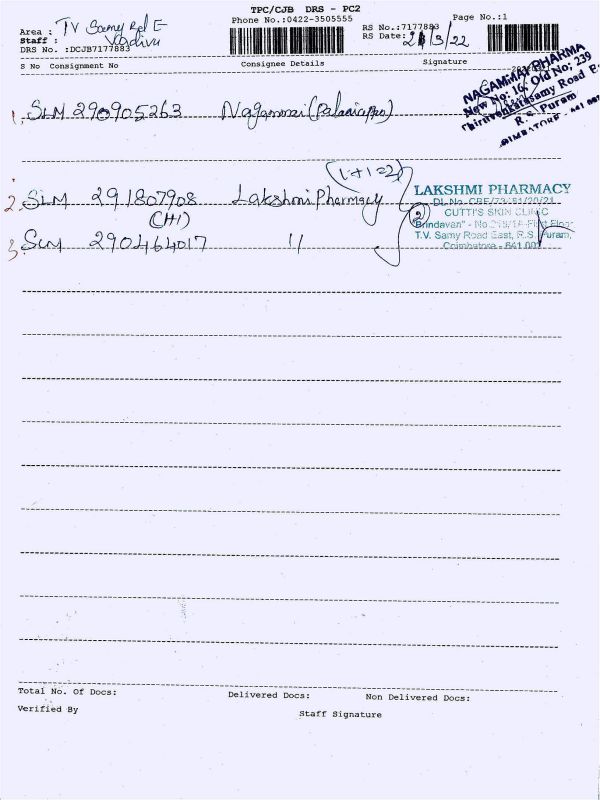 TPC/CJB DRS - PC2
Phone No.:0422-3505555
Page No.:1
Area : TV Samy Rd E
Staff : Vadivu
DRS No. :DCJB7177883
RS No.:7177883
RS Date: 21/3/22
S No Consignment No Consignee Details Signature
NAGAMMAI PHARMA
New No: 16, Old No; 239
Thiruvenkatasamy Road E
R.S. Puram
1. SLM 290905263 Nagammai (Palaniappa)
(1+1=2)
2. SLM 291807908 Lakshmi Pharmacy
(CH1)
3. SLM 290464017 "
2
LAKSHMI PHARMACY
CUTTI'S SKIN CLINIC
T.V. Samy Road East, R.S. Puram,
Coimbatore - 641 002
Total No. Of Docs: Delivered Docs: Non Delivered Docs:
Verified By Staff Signature